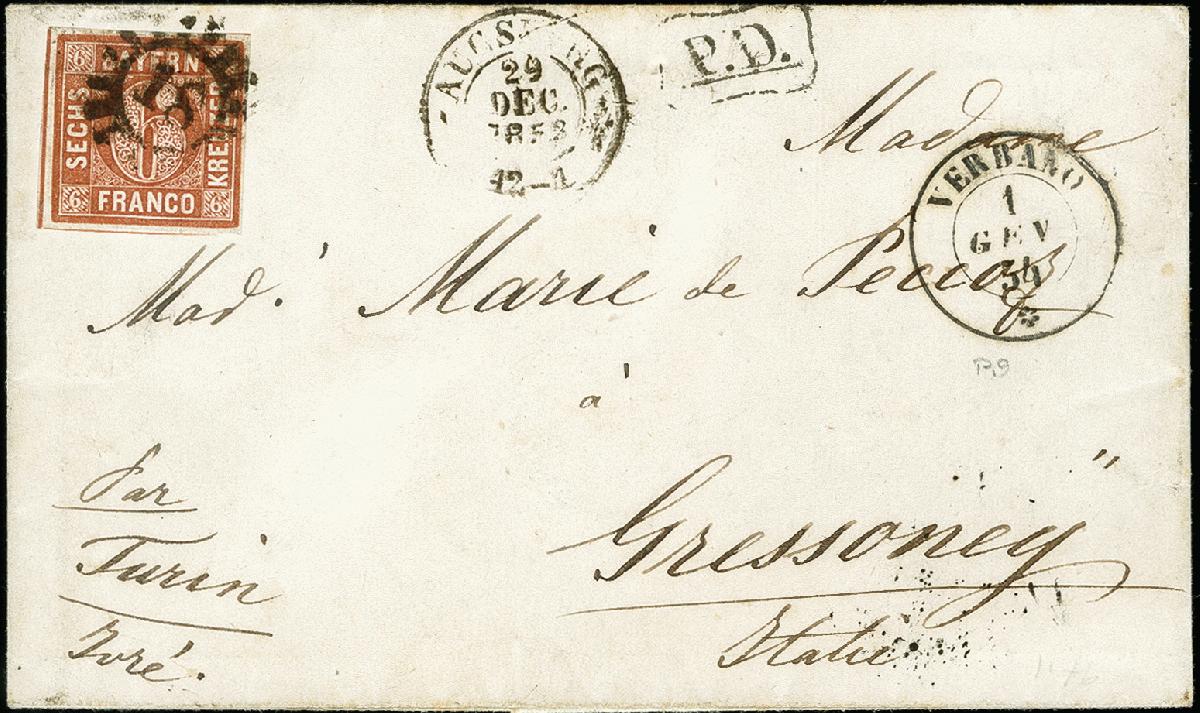 BAYERN
SECHS
KREUZER
FRANCO
6
6
6
6
18
AUGSBURG
29
DEC.
1853
12-1
P.D.
VERBANO
1
GEN
54
Madame
Mad. Marie de Peccoz
à
Gressoney
Italie
Par
Turin
Ivré.
P.9